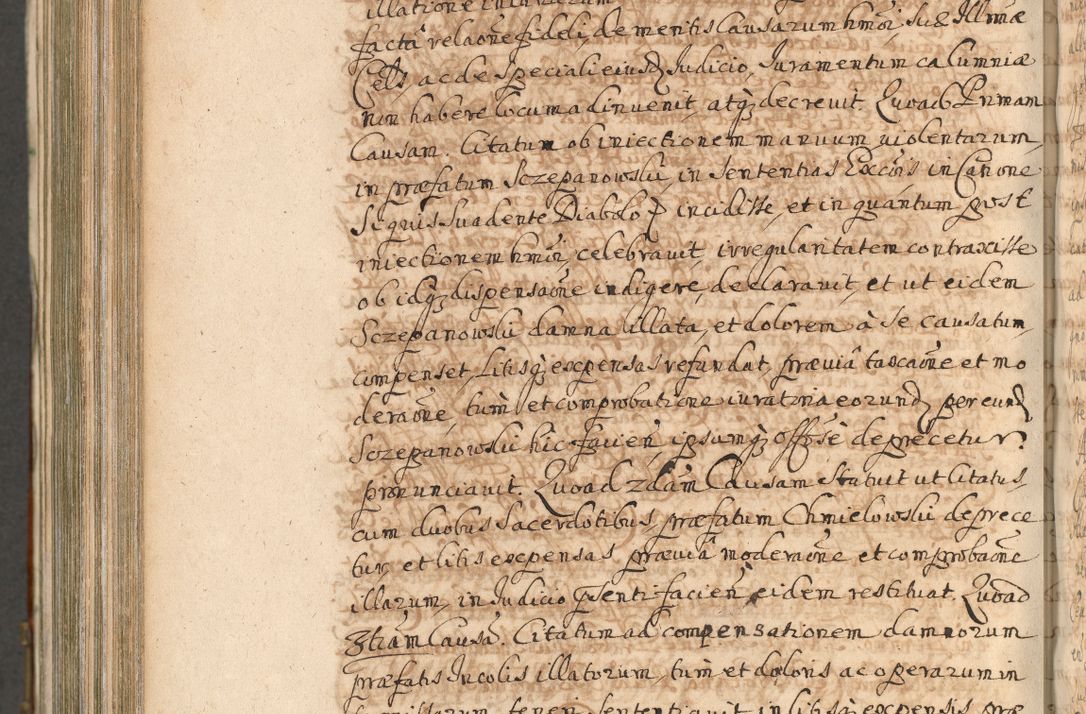 factâ relaõne fideli, de mentis causarum hmõi, Suæ Illmæ
Cels, ac de speciali eiusq Judicio, Juramentum calumniæ
non habere locum adinvenit, atq decrevit. Quoad Primam
Causam. Citatum ob iniectionem manuum violentarum,
in præfatum Sczepanowski, in sententias Exccõis in Canone
Si quis suadente Diabolo p incidisse, et in quantum post
iniectionem hmõi, celebravit, irregularitatem contraxisse
ob idq dispensaõne indigere, declaravit, et ut eidem
Sczepanowski damna illata, et dolorem à se causatum,
compenset, Litisq expensas refundat, præviâ taxaõne et mo
deraõne, tum et comprobatione iuratma eorund, per eund
Sczepanowski hic facien, ipsumq offõse deprecetur
pronunciavit. Quoad 2dam Causam Statuit ut Citatus,
cum duobus Sacerdotibus, præfatum Chmielowski depræce
tur, et litis expensas, præviâ moderaõne et comprobaõne
illarum, in Judicio pñsenti facien, eidem restituat. Quoad
3tiam Causã. Citatum ad compensationem damnorum
præfatis Incolis illatorum, tum et doloris ac operarum in